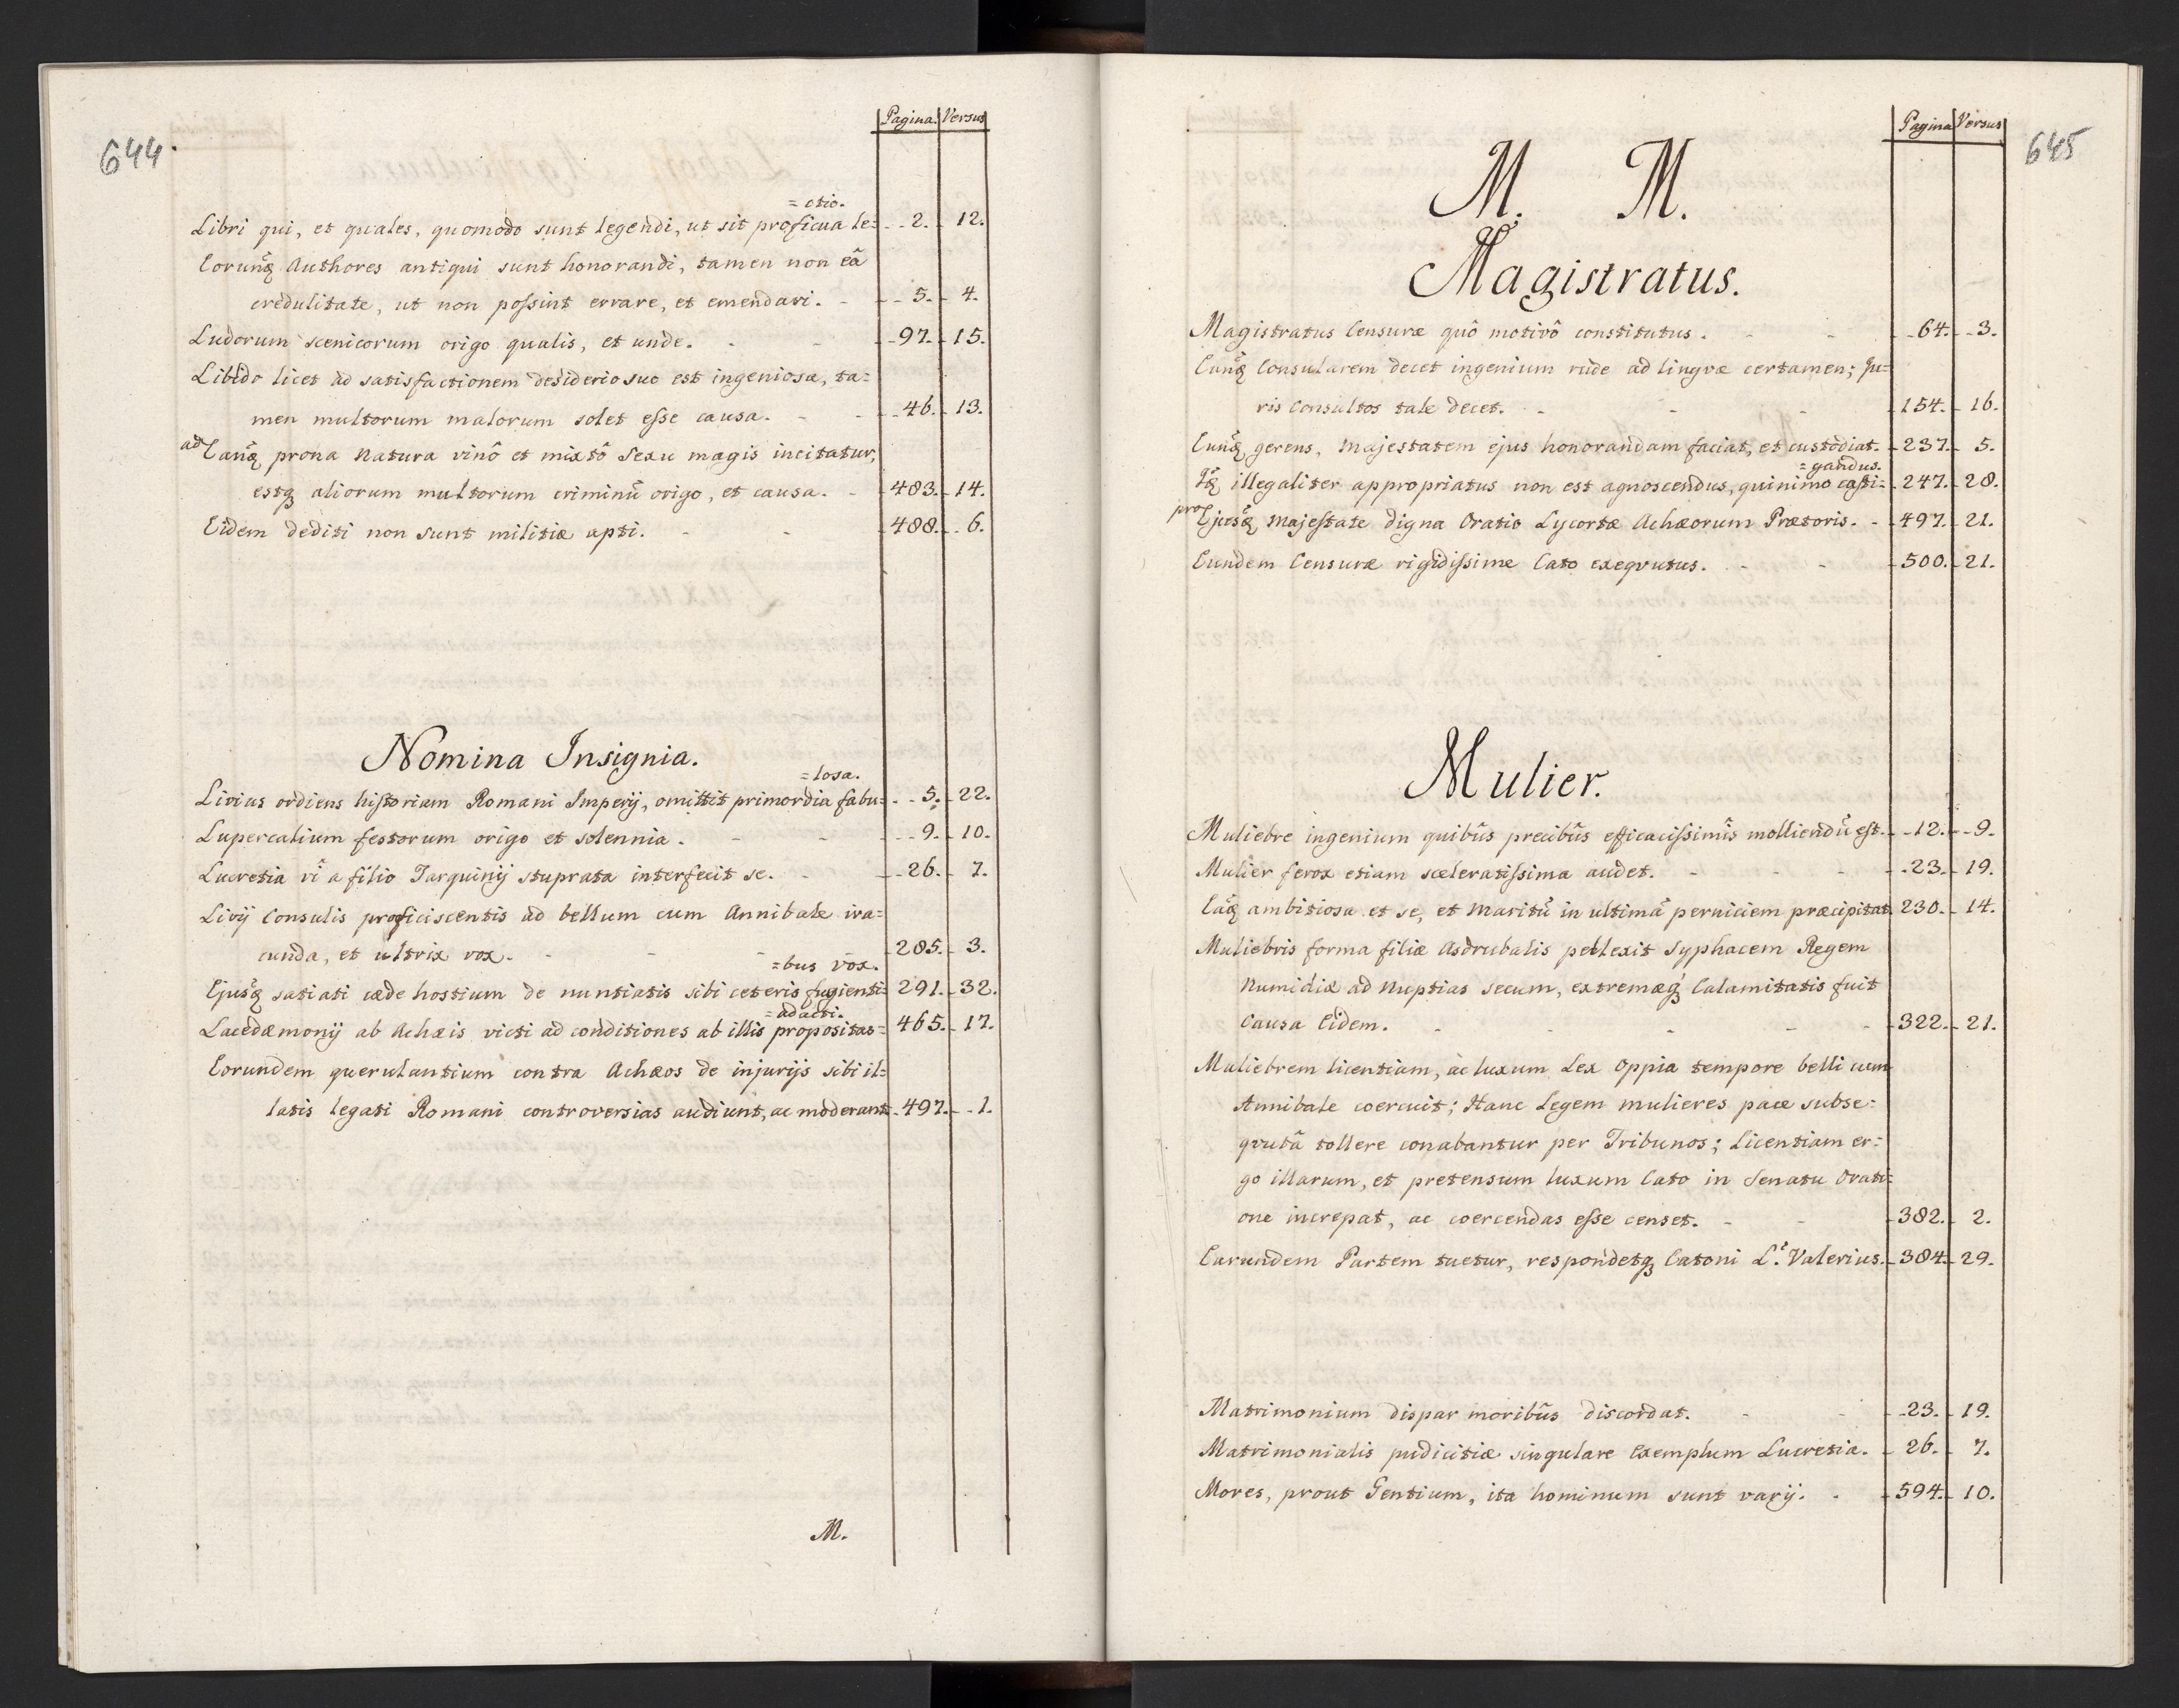 644.
Pagina. Versus
= ctio.
Libri qui, et quales, quomodo sunt legendi, ut sit proficua le= 2. 12.
Eorunq̃ Authores antiqui sunt honorandi, tamen non eâ
credulitate, ut non poſsint errare, et emendari. 5. 4.
Ludorum scenicorum origo qualis, et unde. 97. 15.
Libido licet ad satisfactionem desiderio suo est ingeniosa, ta=
men multorum malorum solet eſse causa. 46. 13.
ad Eanq̃ prona Natura vinô et mixtô Sexu magis incitatur,
estq aliorum multorum criminũ origo, et causa. 483. 14.
Eidem dediti non sunt militiæ apti. 488. 6.
Nomina Insignia.
= losa.
Livius ordiens hiſtoriam Romani Imperij, omittit primordia fabu= 5. 22.
Lupercalium festorum origo et solennia. 9. 10.
Lucretia vî a filio Tarquinij stuprata interfecit se. 26. 7.
Livij Consulis proficiscentis ad bellum cum Annibale ira=
cunda, et ultrix vox. 285. 3.
=bus vox.
Ejusq̃ satiati cæde hostium de nuntiatis sibi ceteris fugienti= 291. 32.
= adacti.
Lacedæmonij ab Achæis victi ad conditiones ab illis propositas= 465. 17.
Eorundem querulantium contra Achæos de injurijs sibi il=
latis legati Romani controversias audiunt, ac moderant 497. 1.
M.
645
Pagina Versus
M. M.
Magistratus.
Magistratus Censuræ quô motivô constitutus. 64. 3.
Eunq̃ Consularem decet ingenium rude ad lingvæ certamen; Ju=
ris Consultos tale decet. 154. 16.
Eunq̃ gerens, Majestatem ejus honorandam faciat, et custodiat. 237. 5.
= gandus.
illegaliter appropriatus non est agnoscendus, quinimo caſti= 247. 28.
pro Ejusq̃ Majeſtate digna Oratio Lycortæ Achæorum Prætoris. 497. 21.
Eundem Censuræ rigidiſsime Cato exeqvutus. 500. 21.
Mulier.
Muliebre ingenium quibũs precibũs efficaciſsimĩs molliendũ eſt. 12. 9.
Mulier ferox etiam sceleratiſsima audet. 23. 19.
Eaq̃ ambitiosa et se, et Maritũ in ultimã perniciem præcipitat. 230. 14.
Muliebris forma filiæ Asdrubalis pellexit Syphacem Regem
Numidiæ ad Nuptias secum, extremæq̃ Calamitatis fuit
Causa Eidem. 322. 21.
Muliebrem licentiam, ac luxum Lex Oppia tempore belli cum
Annibale coercuit; Hanc Legem mulieres pace subse=
qvutâ tollere conabantur per Tribunos; Licentiam er=
go illarum, et pretensum luxum Cato in Senatu Orati=
one increpat, ac coercendas eſse censet. 382. 2.
Earundem Partem tuetur, respondetq Catoni L.s Valerius. 384. 29.
Matrimonium dispar moribũs discordat. 23. 19.
Matrimonialis pudicitiæ singulare Exemplum Lucretia. 26. 7.
Mores, prout Gentium, ita hominum sunt varij. 594. 10.